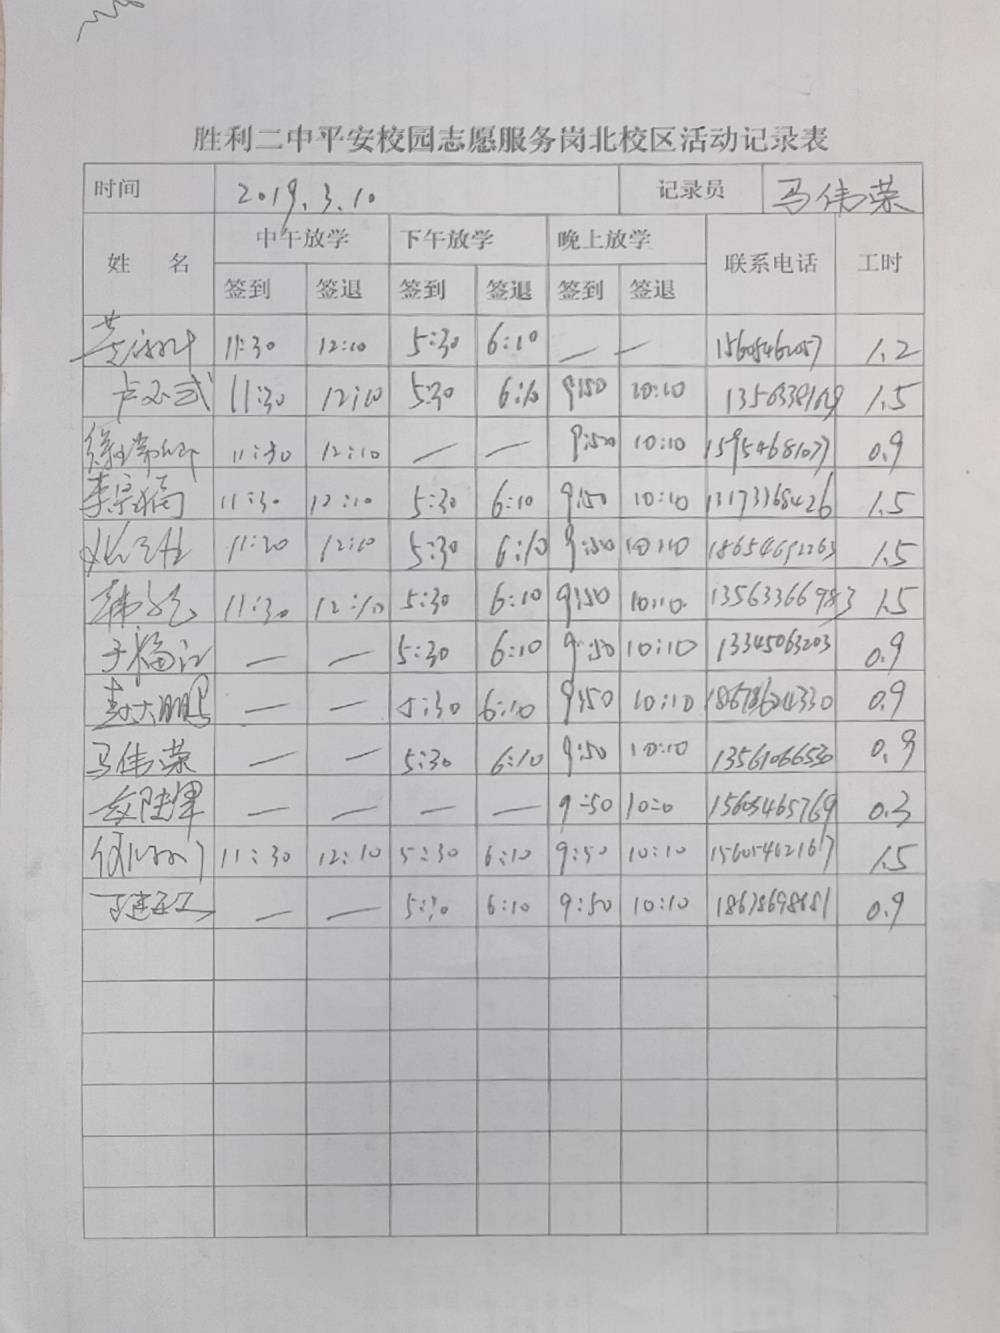 胜利二中平安校园志愿服务岗北校区活动记录表
时间 2019.3.10 记录员 马伟荣
姓 名 中午放学 下午放学 晚上放学 联系电话 工时
签到 签退 签到 签退 签到 签退
11:30 12:10 5:30 6:10 — — 1.2
11:30 12:10 5:30 6:10 9:50 10:10 1.5
11:30 12:10 — — 9:50 10:10 15954681077 0.9
11:30 12:10 5:30 6:10 9:50 10:10 13173368426 1.5
11:30 12:10 5:30 6:10 9:50 10:10 18654692263 1.5
11:30 12:10 5:30 6:10 9:50 10:10 13563366983 1.5
于福江 — — 5:30 6:10 9:50 10:10 13345063203 0.9
— — 5:30 6:10 9:50 10:10 0.9
马伟荣 — — 5:30 6:10 9:50 10:10 13561066530 0.9
— — — — 9:50 10:0 15605465769 0.3
11:30 12:10 5:30 6:10 9:50 10:10 15605462167 1.5
— — 5:30 6:10 9:50 10:10 18678698681 0.9